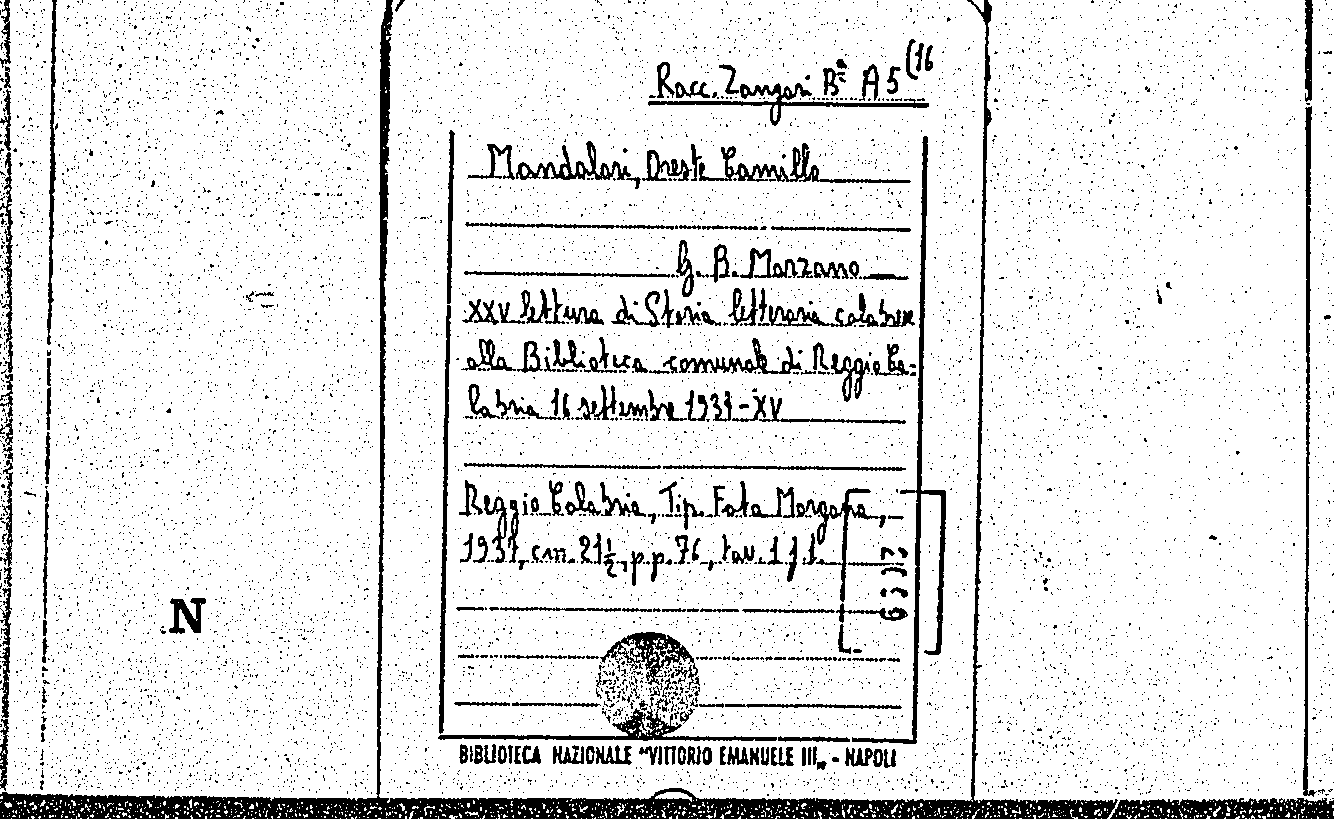 Racc. Zangari Bª A 5 (16
Mandalari, Oreste Camillo
G. B. Marzano
XXV lettura di Storia letteraria calabrese
alla Biblioteca comunale di Reggio Ca=
labria 16 settembre 1937-XV
Reggio Calabria, Tip. Fata Morgana,
1937, cm. 21½, pp. 76, tav. 1 f.t.
N
BIBLIOTECA NAZIONALE "VITTORIO EMANUELE III„ - NAPOLI